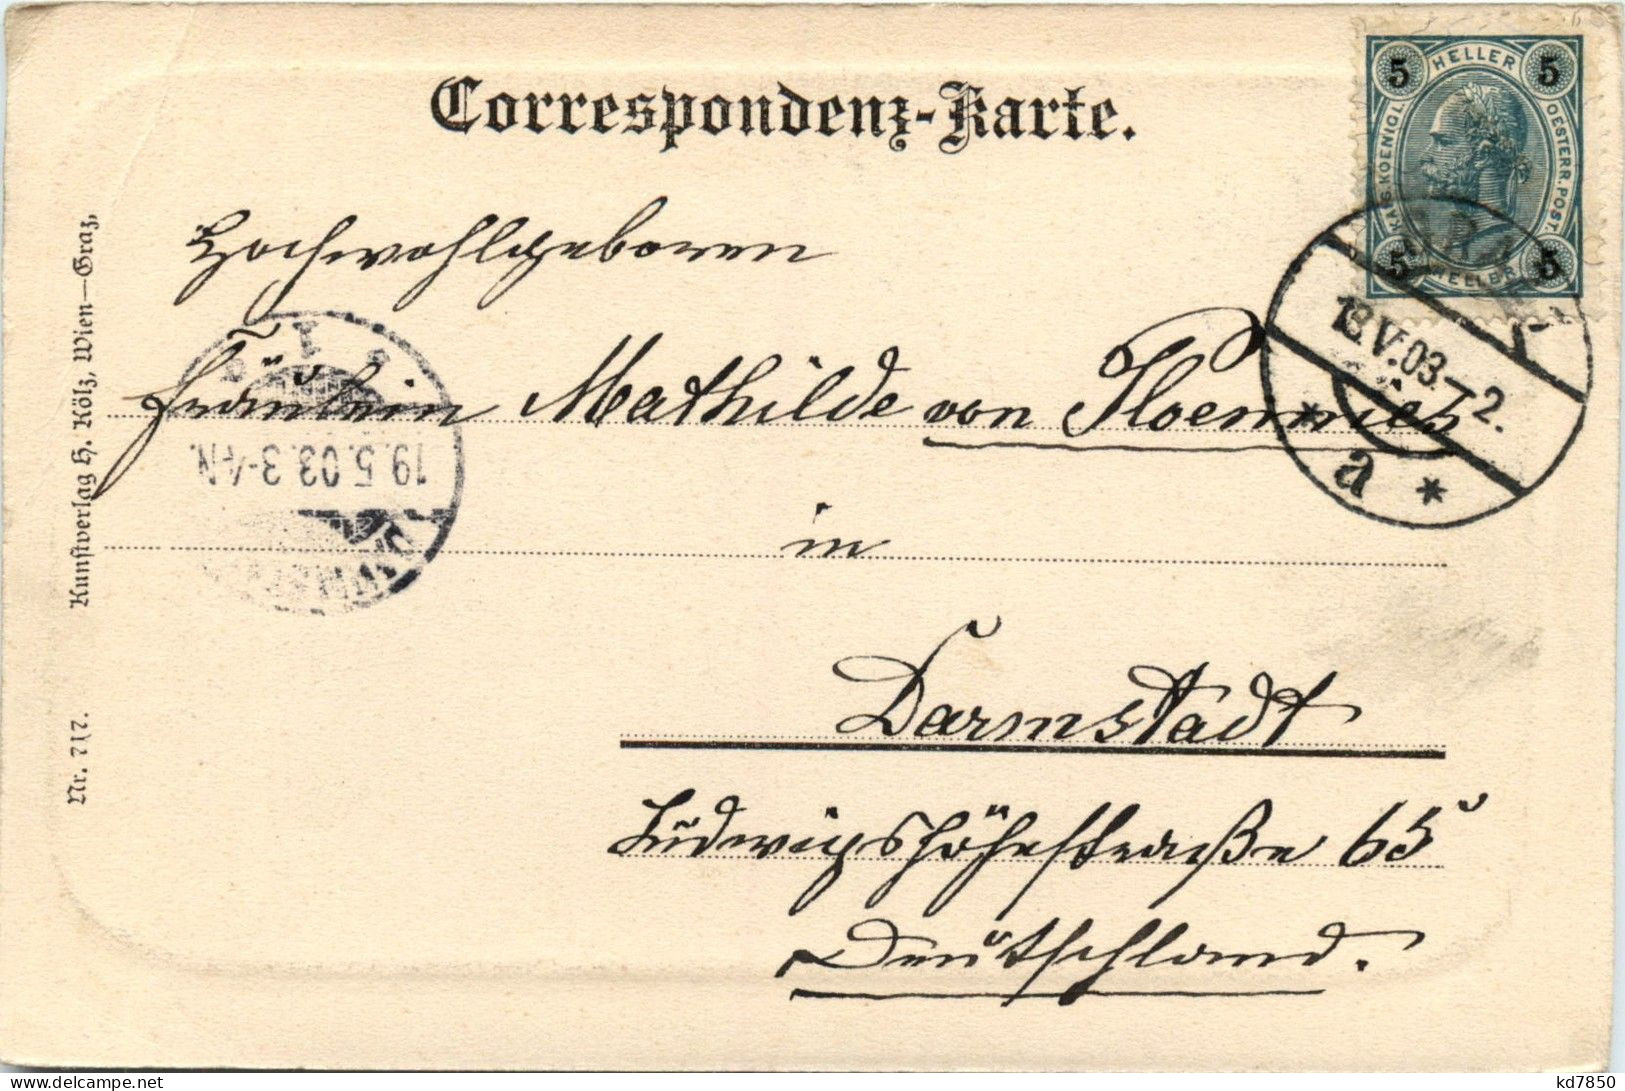 Correspondenz-Karte.
5 HELLER 5
KAIS. KOENIGL. OESTERR. POST
5 HELLER 5
18.V.03.-7-2.
* a *
Hochwohlgeboren
Fräulein Mathilde von Ploennies
19.5.03.3-4N.
in
Darmstadt
Ludwigshöhstraße 65
Deutschland.
Kunstverlag H. Kölz, Wien—Graz,
Nr. 717.
delcampe.net
kd7850